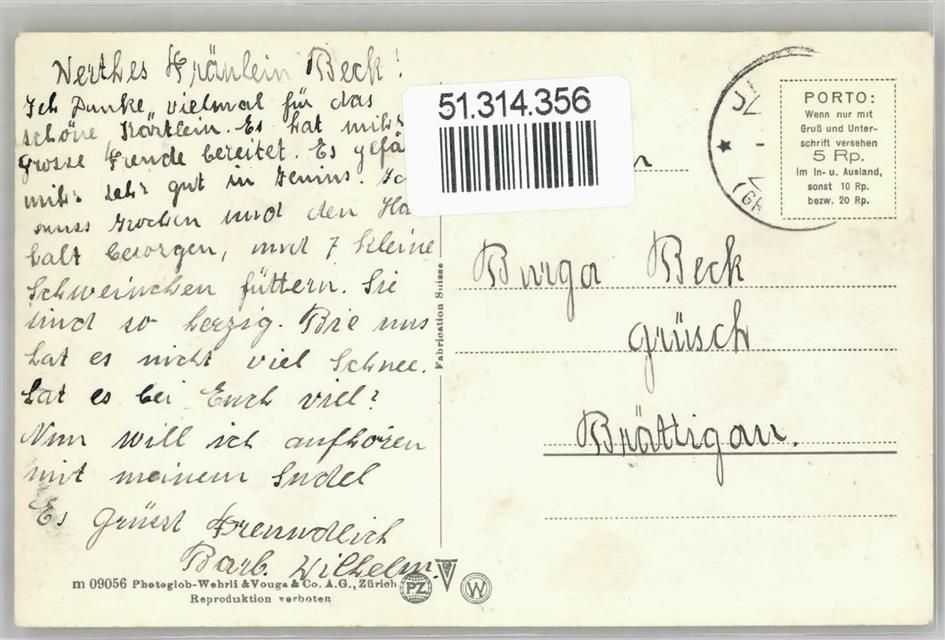 Werthes Fräulein Beck!
Ich Danke vielmal für das
schöne Kärtlein. Es hat mihr
grosse Freude bereitet. Es gefä
mihr sehr gut in Jenins. Ich
muss kochen und den Ha
halt besorgen, und 7 kleine
Schweinchen füttern. Sie
sind so herzig. Bie uns
hat es nicht viel Schnee.
hat es bei Euch viel?
Nun will ich aufhören
mit meinem Sudel
Es Grüsst Freundlich
Barb. Wilhelm.
m 09056 Photoglob-Wehrli & Vouga & Co. A.G., Zürich
Reproduktion verboten
PZ
W
Fabrication Suisse
51.314.356
PORTO:
Wenn nur mit
Gruß und Unter-
schrift versehen
5 Rp.
Im In- u. Ausland,
sonst 10 Rp.
bezw. 20 Rp.
Burga Beck
Grüsch
Brättigau.